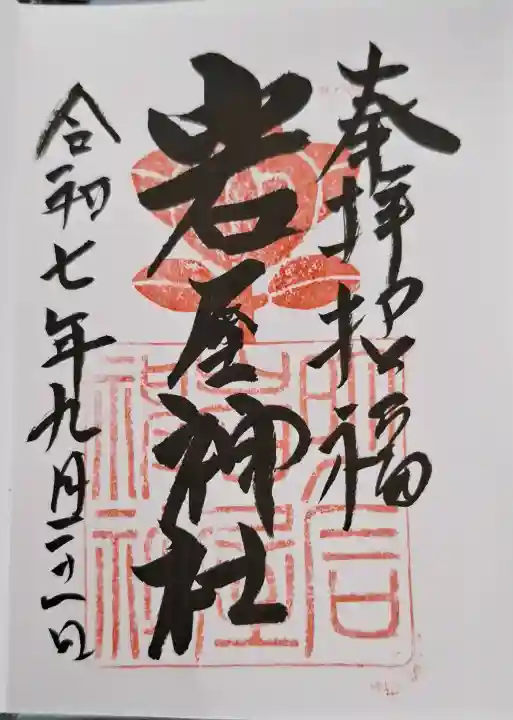 奉拝 招福
岩屋神社
令和七年九月二十一日